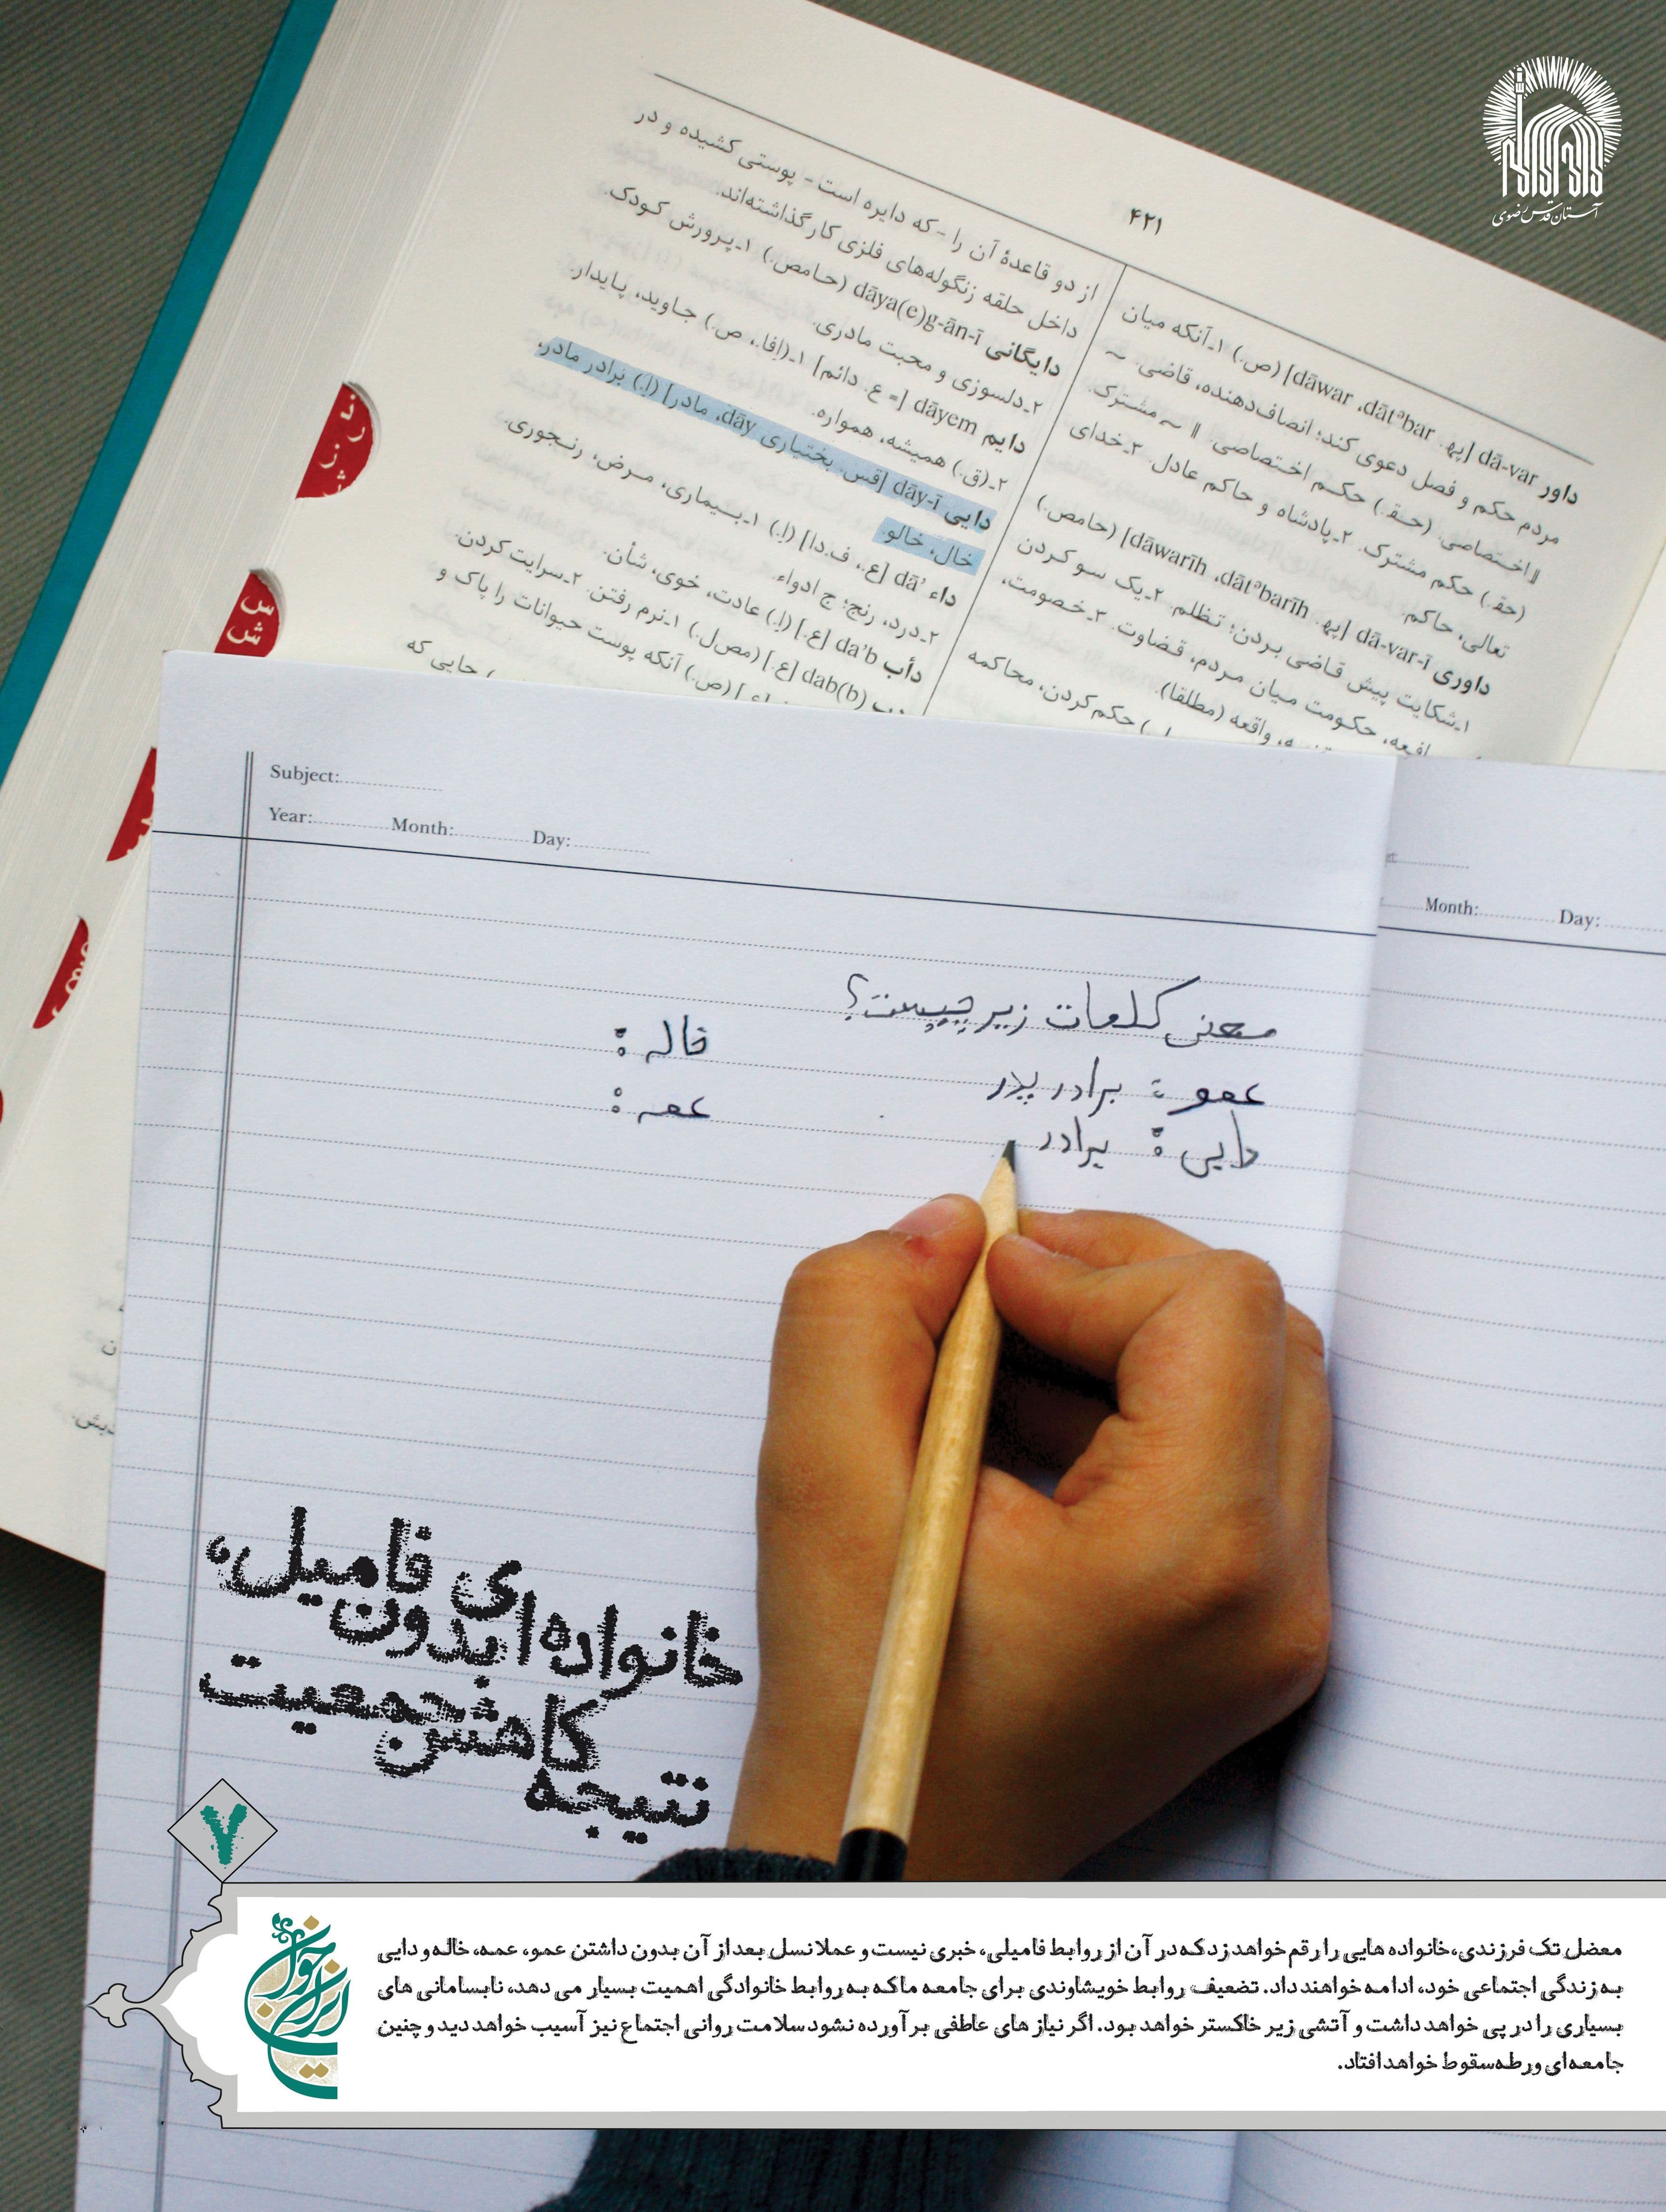 آستان قدس رضوی
۴۲۱
داور dā-var [پهـ. dāwar ،dātᵊbar] (ص.) ۱ـ آنکه میان
مردم حکم و فصل دعوی کند؛ انصاف‌دهنده، قاضی. ~
اختصاصی. (حقـ.) حکم اختصاصی. ‖ ~ مشترک.
(حقـ.) حکم مشترک. ۲ـ پادشاه و حاکم عادل. ۳ـ خدای
تعالی، حاکم.
داوری dā-var-ī [پهـ. dāwarīh ،dātᵊbarīh] (حامص.)
۱ـ شکایت پیش قاضی بردن؛ تظلم. ۲ـ یک سو کردن
مرافعه، حکومت میان مردم، قضاوت. ۳ـ خصومت،
واقعه (مطلقا).
حکم کردن، محاکمه
از دو قاعدهٔ آن را - که دایره است - پوستی کشیده و در
داخل حلقه زنگوله‌های فلزی کار گذاشته‌اند.
دایگانی dāya(e)g-ān-ī (حامص.) ۱ـ پرورش کودک.
۲ـ دلسوزی و محبت مادری.
دایم dāyem [= ع. دائم] ۱ـ (اِفا.، ص.) جاوید، پایدار.
۲ـ (ق.) همیشه، همواره.
دایی dāy-ī [قس. بختیاری dāy، مادر] (اِ.) برادر مادر،
خال، خالو.
داء dā' [ع.، ف.دا] (اِ.) ۱ـ بیماری، مرض، رنجوری.
۲ـ درد، رنج؛ ج ادواء.
دأب da'b [ع.] (اِ.) عادت، خوی، شأن.
dab(b) [ع.] (مص‌ل.) ۱ـ نرم رفتن. ۲ـ سرایت کردن.
(ص.) آنکه پوست حیوانات را پاک و
جایی که
س
ش
Subject:
Year: Month: Day:
Month: Day:
معنی کلمات زیر چیست؟
عمو : برادر پدر
دایی : برادر
خاله :
عمه :
خانواده ای بدون فامیل،
نتیجه کاهش جمعیت
۷
ایران جوان
معضل تک فرزندی، خانواده هایی را رقم خواهد زد که در آن از روابط فامیلی، خبری نیست و عملا نسل بعد از آن بدون داشتن عمو، عمه، خاله و دایی
به زندگی اجتماعی خود، ادامه خواهند داد. تضعیف روابط خویشاوندی برای جامعه ما که به روابط خانوادگی اهمیت بسیار می دهد، نابسامانی های
بسیاری را در پی خواهد داشت و آتشی زیر خاکستر خواهد بود. اگر نیاز های عاطفی بر آورده نشود سلامت روانی اجتماع نیز آسیب خواهد دید و چنین
جامعه ای ورطه سقوط خواهد افتاد.